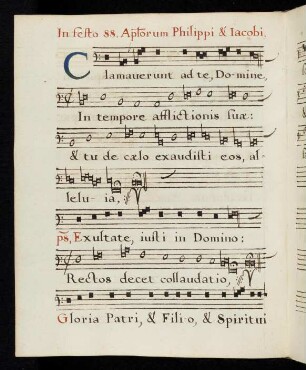 In festo SS. Aptorum Philippi & Iacobi.
Clamaverunt ad te, Domine,
In tempore afflictionis suæ:
& tu de cælo exaudisti eos, al-
lelu-ia,
ps, Exultate, iusti in Domino:
Rectos decet collaudatio,
Gloria Patri, & Filio, & Spiritui